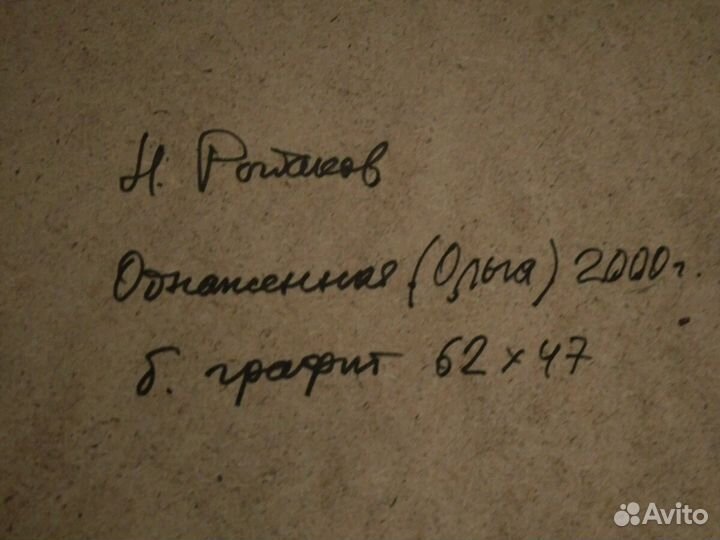 Н.
Обнаженная (Ольга) 2000г.
б. графит 62 x 47
Avito